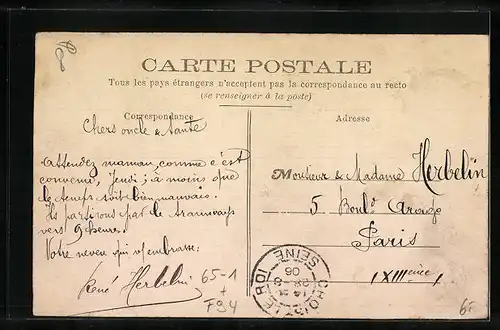 CARTE POSTALE
Tous les pays étrangers n'acceptent pas la correspondance au recto
(se renseigner à la poste)
Correspondance
Chers oncle & tante
Attendez maman, comme c'est
convenu, Jeudi ; à moins que
le temps soit bien mauvais.
Ils partirons par le tramways
vers 9 heure.
Votre neveu qui
René Herbelin
65-1
+
F94
Adresse
Monsieur & Madame Herbelin
5 Boul.d Arago
Paris
(XIIIeme)
CHOISY-LE-ROI
SEINE
06
65